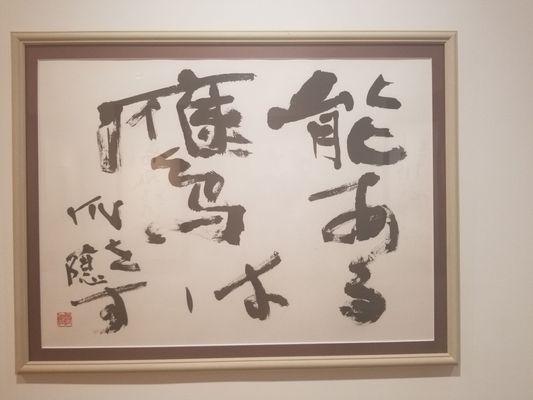 能ある
鷹は
爪を隠す